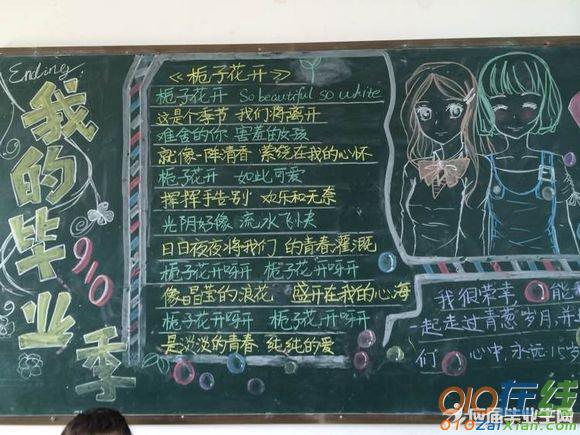 Ending
我的毕业季
910
《栀子花开》
栀子花开 So beautiful so white
这是个季节 我们将离开
难舍的你 害羞的女孩
就像一阵清香 萦绕在我的心怀
栀子花开 如此可爱
挥挥手告别 欢乐和无奈
光阴好像 流水飞快
日日夜夜将我们 的青春灌溉
栀子花开呀开 栀子花开呀开
像晶莹的浪花 盛开在我的心海
栀子花开呀开 栀子花开呀开
是淡淡的青春 纯纯的爱
我很荣幸, 能和
一起走过青葱岁月, 并
们 心中, 永远 16岁
010在线
应届毕业生网
010zaixian.com